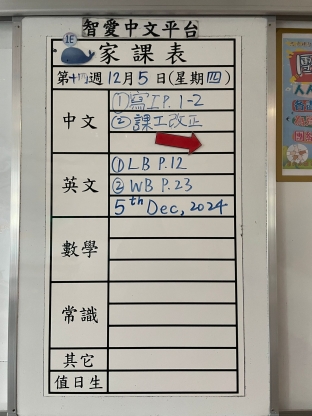 智愛中文平台
正
家課表
第十四週12月5日(星期四)
中文
①寫工P.1-2
②課工改正
英文
①LB P.12
②WB P.23
5th Dec, 2024
數學
常識
其它
值日生